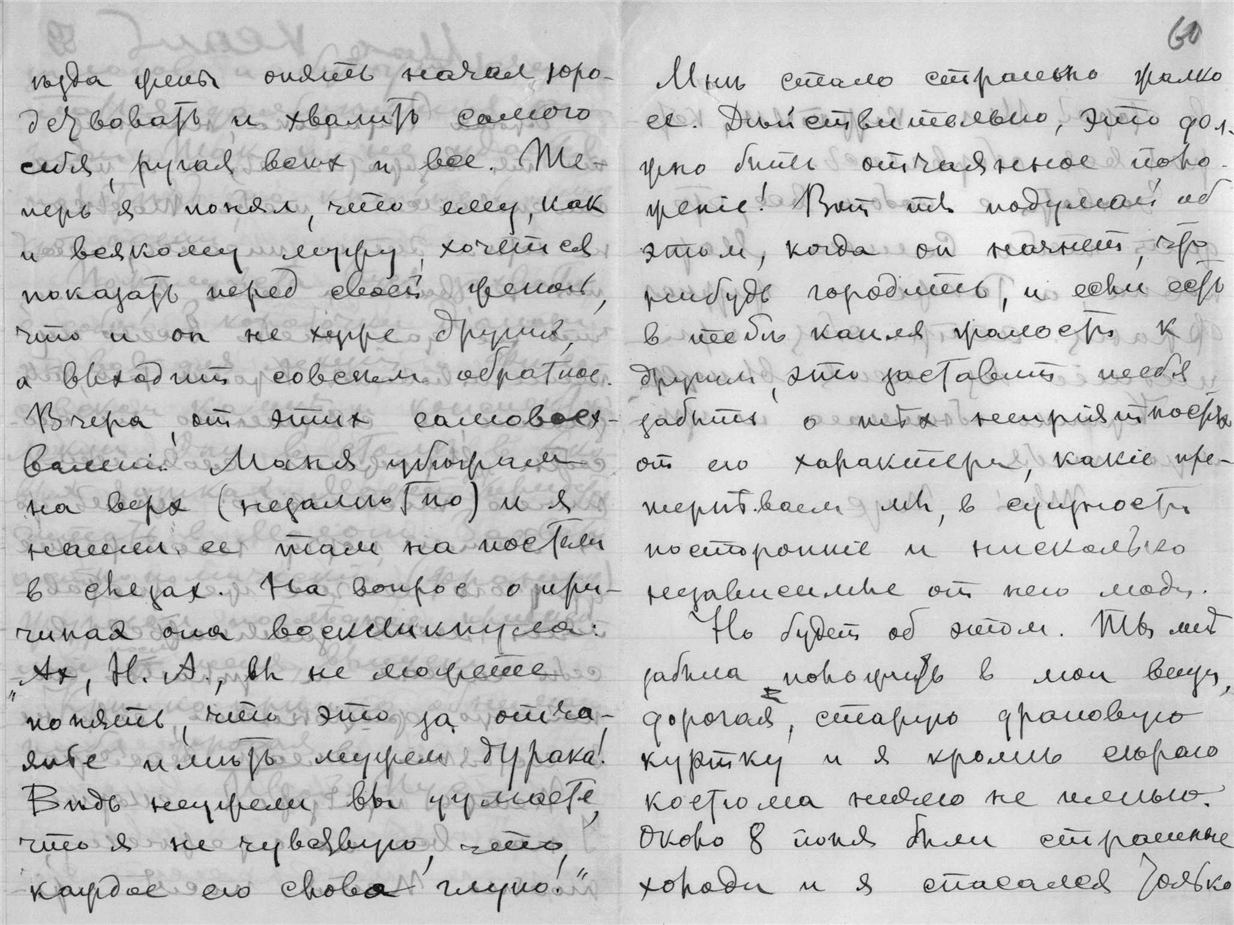 езда жены опять начал юро-
дствовать и хвалить самого
себя, ругая всех и все. Те-
перь я понял, что ему, как
и всякому мужу, хочется
показать перед своей женой,
что и он не хуже других,
а выходит совсем обратное.
Вчера от этих самовосх-
валений Маня убежала
на верх (незаметно) и я
нашел ее там на постели
в слезах. На вопрос о при-
чинах она воскликнула:
"Ах, Н. А., вы не можете
понять, что это за отча-
янье иметь мужем дурака!
Ведь неужели вы думаете,
что я не чувствую, что
каждое его слово глупо!"
60
Мнѣ стало страшно жалко
ее. Дѣйствительно, это дол-
жно быть отчаянное поло-
женіе! Вот ты подумай об
этом, когда он начнет, что
нибудь городить, и если есть
в тебѣ капля жалости к
другим, это заставит тебя
забыть о тѣх непріятностях
от его характера, какіе пре-
терпѣваем мы, в сущности
посторонніе и нисколько
независимые от него люди.
Но будет об этом. Ты мнѣ
забыла положить в мои вещи,
дорогая, старую драповую
куртку и я кромѣ сѣраго
костюма ничего не имѣю.
Около 8 іюня были страшные
холода и я спасался только